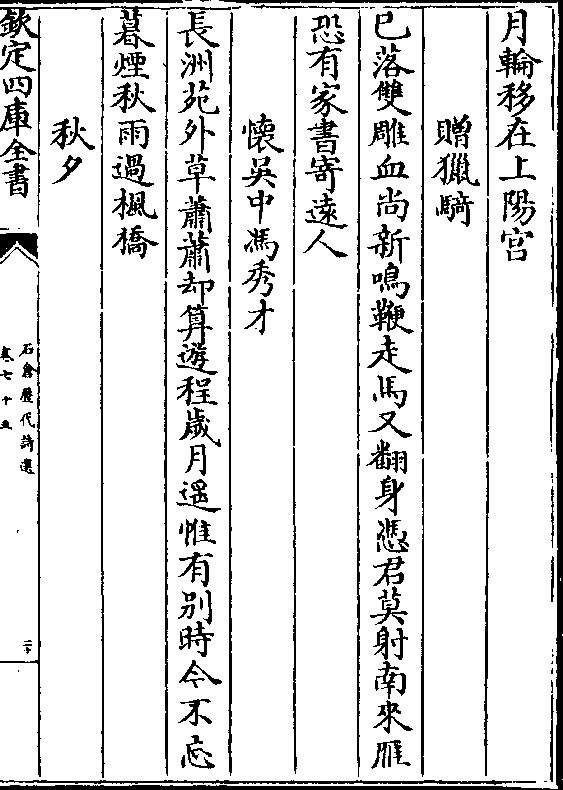 月輪移在上陽宮
贈獵騎
已落雙雕血尚新鳴鞭走馬又翻身憑君莫射南來雁
恐有家書寄遠人
懷吳中馮秀才
長洲苑外草蕭蕭却算遊程歲月遥惟有别時今不忘
暮煙秋雨過楓橋
秋夕
欽定四庫全書
石倉歷代詩選
卷七十五
二十